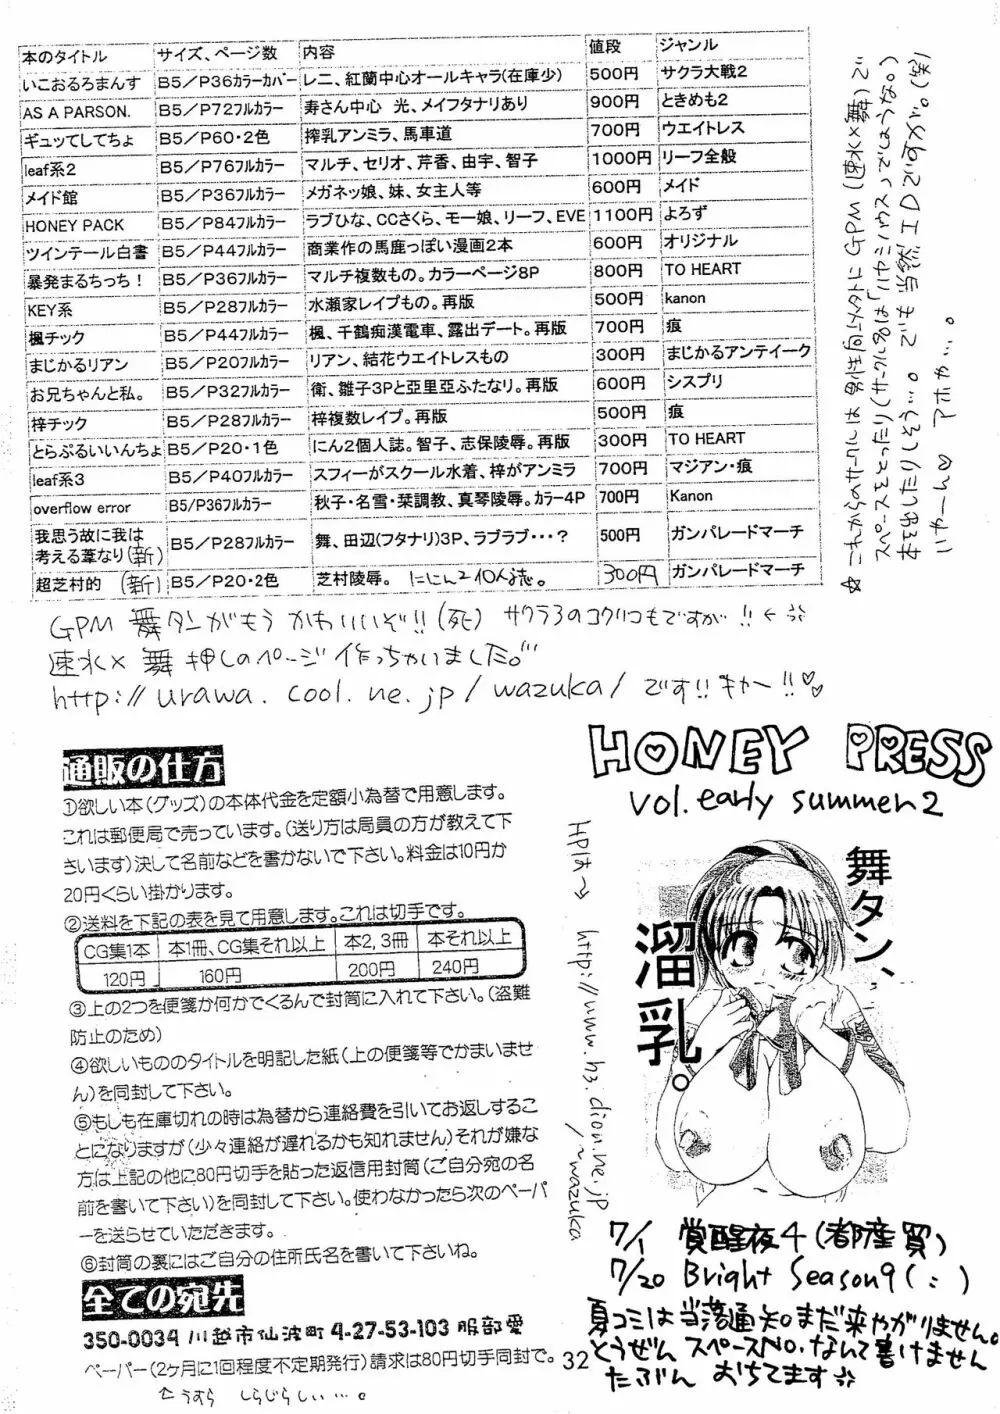 本のタイトル サイズ、ページ数 内容 値段 ジャンル
いこおるろまんす B5／P36カラーカバー レニ、紅蘭中心オールキャラ(在庫少) 500円 サクラ大戦2
AS A PARSON. B5／P72フルカラー 寿さん中心 光、メイフタナリあり 900円 ときめも2
ギュッてしてちょ B5／P60・2色 搾乳アンミラ、馬車道 700円 ウエイトレス
leaf系2 B5／P76フルカラー マルチ、セリオ、芹香、由宇、智子 1000円 リーフ全般
メイド館 B5／P36フルカラー メガネッ娘、妹、女主人等 600円 メイド
HONEY PACK B5／P84フルカラー ラブひな、CCさくら、モー娘、リーフ、EVE 1100円 よろず
ツインテール白書 B5／P44フルカラー 商業作の馬鹿っぽい漫画2本 600円 オリジナル
暴発まるちっち！ B5／P36フルカラー マルチ複数もの。カラーページ8P 800円 TO HEART
KEY系 B5／P28フルカラー 水瀬家レイプもの。再版 500円 kanon
楓チック B5／P44フルカラー 楓、千鶴痴漢電車、露出デート。再版 700円 痕
まじかるリアン B5／P20フルカラー リアン、結花ウエイトレスもの 300円 まじかるアンティーク
お兄ちゃんと私。 B5／P32フルカラー 衛、雛子3Pと亜里亜ふたなり。再版 600円 シスプリ
梓チック B5／P28フルカラー 梓複数レイプ。再版 500円 痕
とらぶるいいんちょ B5／P20・1色 にん2個人誌。智子、志保陵辱。再版 300円 TO HEART
leaf系3 B5／P40フルカラー スフィーがスクール水着、梓がアンミラ 700円 マジアン・痕
overflow error B5/P36フルカラー 秋子・名雪・栞調教、真琴陵辱。カラー4P 700円 Kanon
我思う故に我は
考える葦なり(新) B5／P28フルカラー 舞、田辺(フタナリ)3P、ラブラブ・・・？ 500円 ガンパレードマーチ
超芝村的 (新) B5／P20・2色 芝村陵辱。ににん2個人誌。 300円 ガンパレードマーチ
☆これからのサークルは男性向けメタトにGPM(速水×舞)で
スペースをとったり(サークル名は「ハヤミハウス」でしょうな。)
本を出したりしそう…。でも当然エロですダ。(笑)
いやーん♡ アホか…。
GPM 舞タンがもうかわいいぞ!!(死) サクラ3のコクリコもですが!!
速水×舞 押しのページ作っちゃいました。
http://urawa.cool.ne.jp/wazuka/ です!!キャー!!♡♡
通販の仕方
①欲しい本(グッズ)の本体代金を定額小為替で用意します。
これは郵便局で売っています。(送り方は局員の方が教えて下
さいます)決して名前などを書かないで下さい。料金は10円か
20円くらい掛かります。
②送料を下記の表を見て用意します。これは切手です。
CG集1本 本1冊、CG集それ以上 本2,3冊 本それ以上
120円 160円 200円 240円
③上の2つを便箋か何かでくるんで封筒に入れて下さい。(盗難
防止のため)
④欲しいもののタイトルを明記した紙(上の便箋等でかまいませ
ん)を同封して下さい。
⑤もしも在庫切れの時は為替から連絡費を引いてお返しするこ
とになりますが(少々連絡が遅れるかも知れません)それが嫌な
方は上記の他に80円切手を貼った返信用封筒(ご自分宛の名
前を書いて下さい)を同封して下さい。使わなかったら次のペーパ
ーを送らせていただきます。
⑥封筒の裏にはご自分の住所氏名を書いて下さいね。
全ての宛先
350-0034 川越市仙波町4-27-53-103 服部愛
ペーパー(2ヶ月に1回程度不定期発行)請求は80円切手同封で。
←うすら しらじらしい…。
32
HONEY PRESS
vol. early summer 2
HPは→ http://www.h3.dion.ne.jp/~wazuka
舞タン、
溜乳。
7/1 覚醒夜4(都産貿)
7/20 Bright Season9(:)
夏コミは当落通知まだ来やがりません。
とうぜん スペースNO.なんて書けません
たぶん おちてます